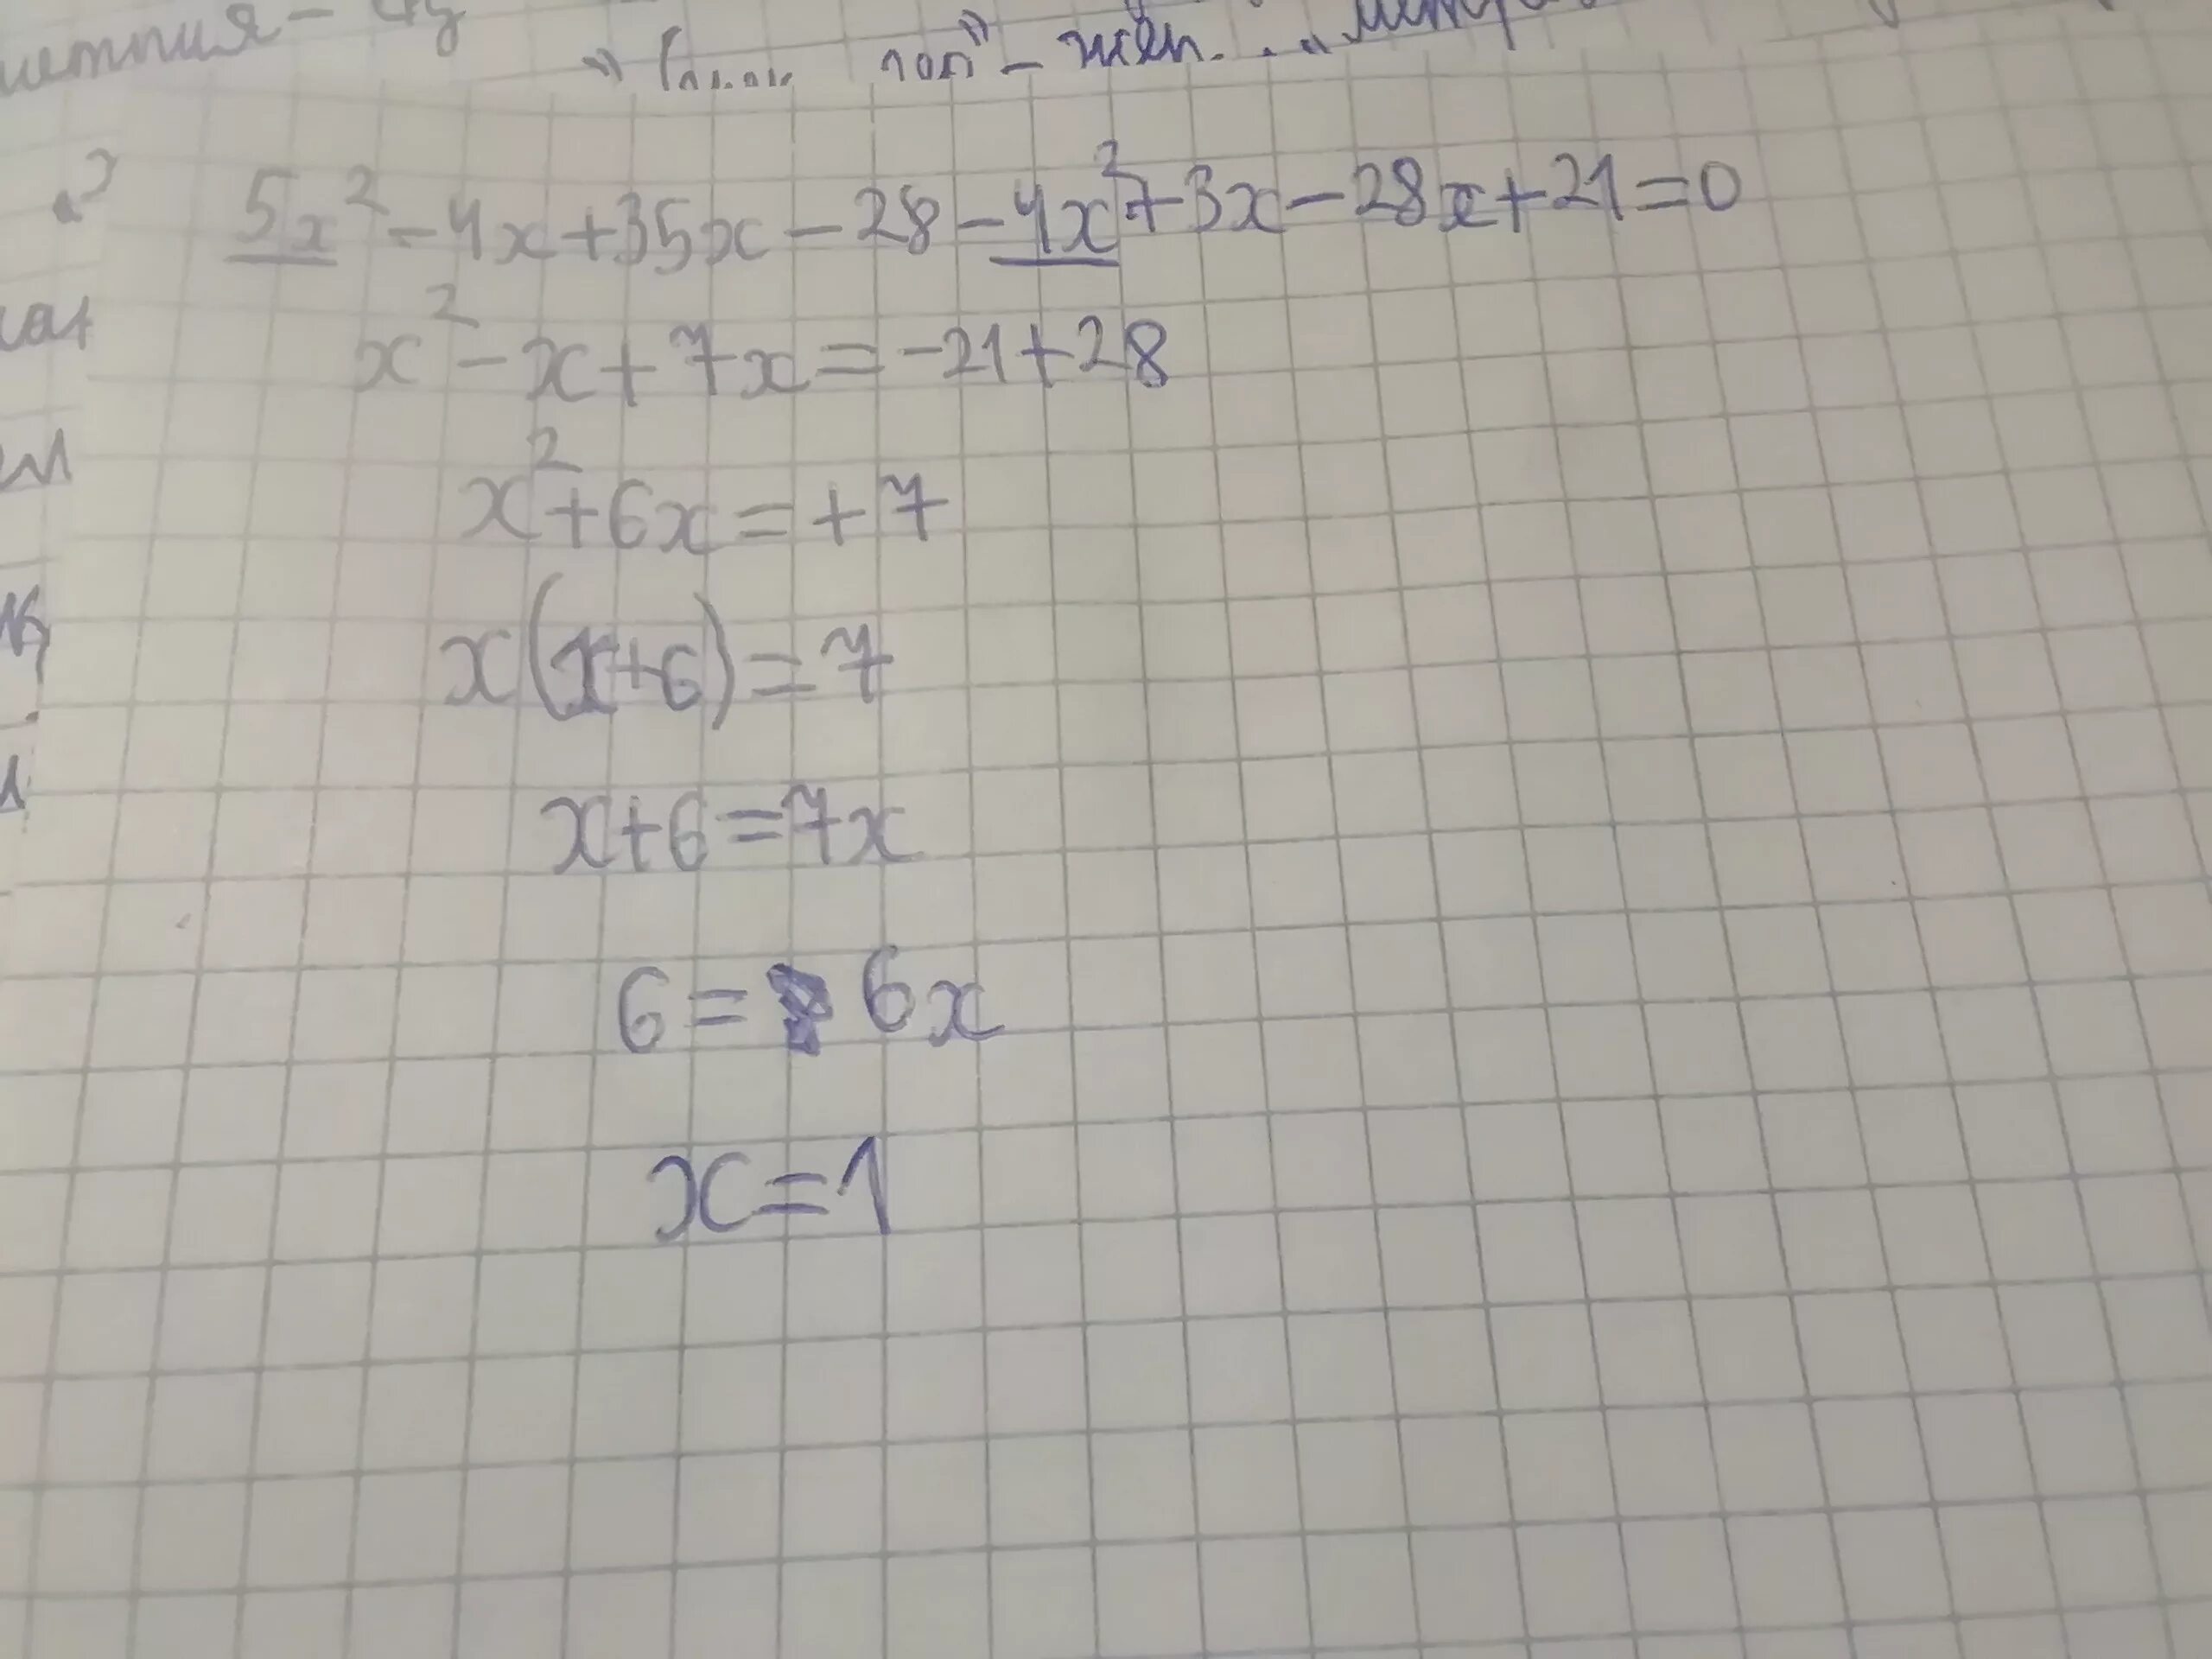 5x² - 4x + 35x - 28 - 4x² + 3x - 28x + 21 = 0
x² - x + 7x = -21 + 28
x² + 6x = + 7
x(x+6) = 7
x + 6 = 7x
6 = 6x
x = 1